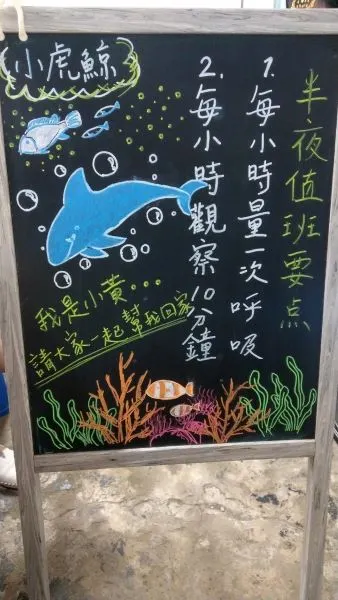 小虎鯨
半夜值班要点
1. 每小時量一次呼吸
2. 每小時觀察10分鐘
我是小黃...
請大家一起幫我回家